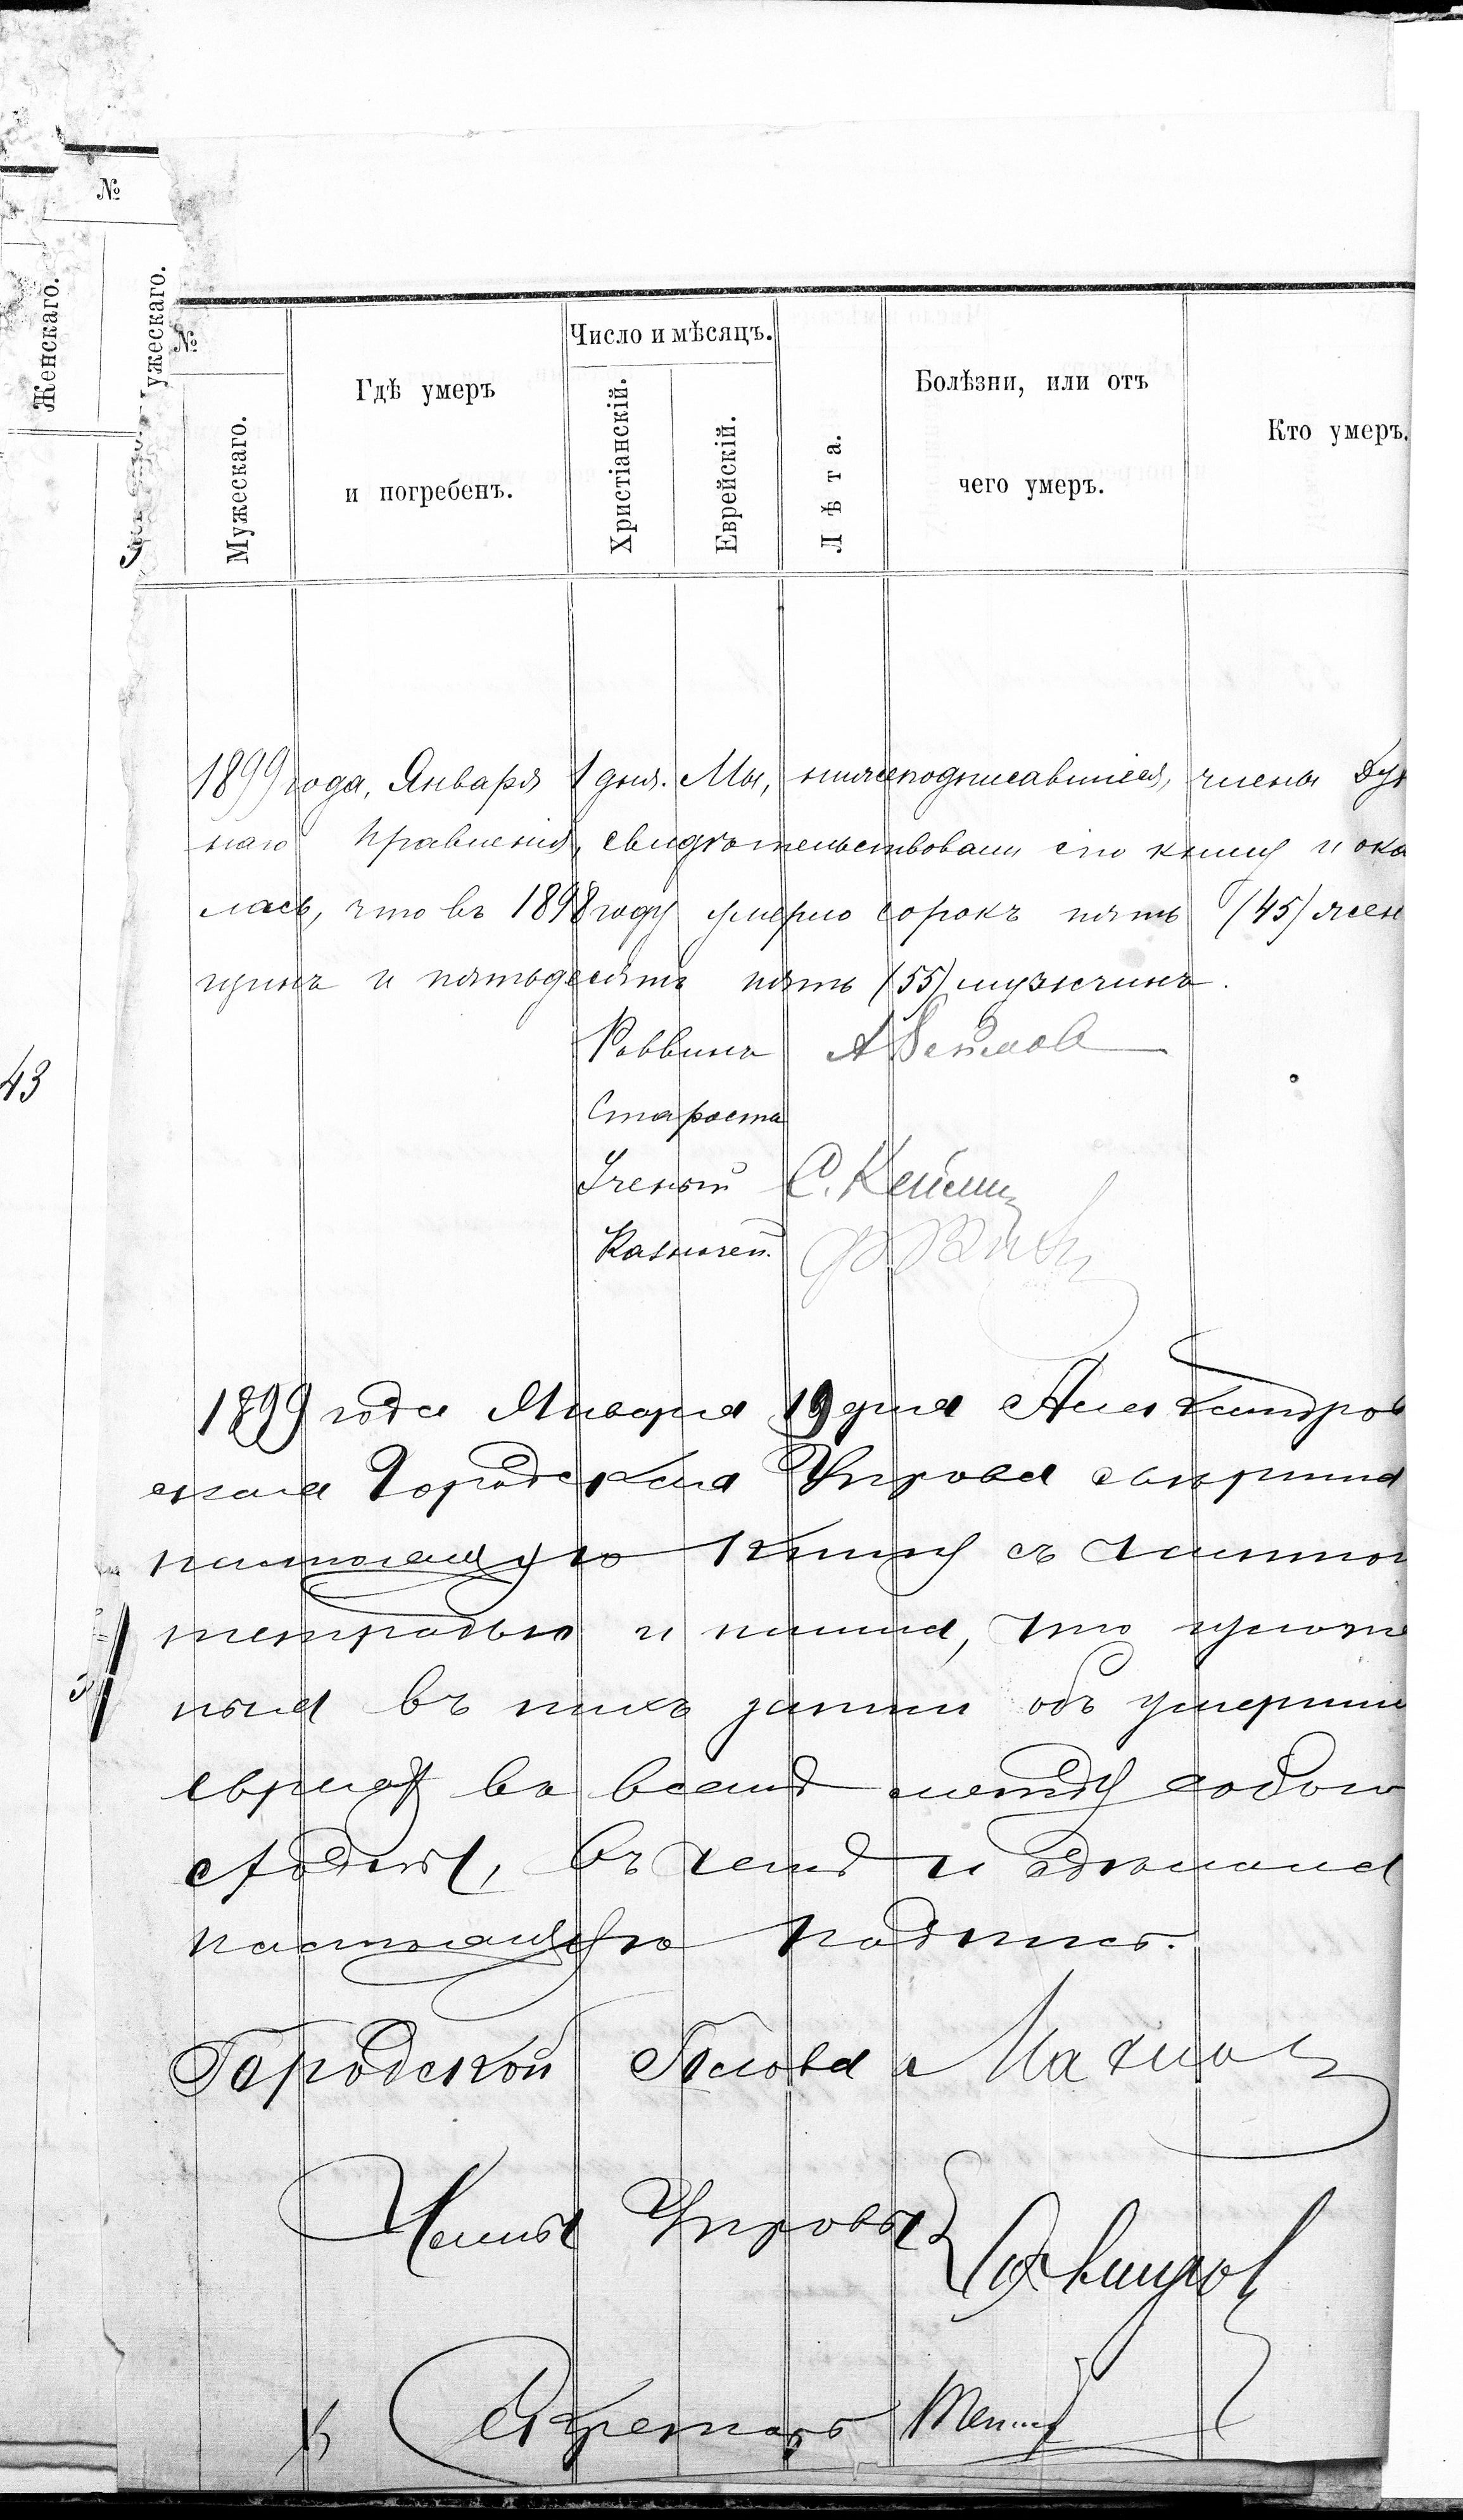 №
Женскаго.
ужескаго.
№
Мужескаго.
Гдѣ умеръ
и погребенъ.
Число и мѣсяцъ.
Христіанскій.
Еврейскій.
Лѣта.
Болѣзни, или отъ
чего умеръ.
Кто умеръ.
43
1899 года, Января 1 дня. Мы, нижеподписавшіеся, члены Дух
наго Правленія, свидѣтельствовали сію книгу и ока
лась, что въ 1898 году умерло сорокъ пять (45) жен
щинъ и пятьдесятъ пять (55) мужчинъ.
Раввинъ
Староста
Ученый С.
Казначей
1899 года Января 19 дня Александров
ская Городская Управа свѣрила
настоящую книгу съ
тетрадью и нашла, что
ныя въ нихъ записи объ умерши
евреяхъ во всемъ между собою
сходны, въ чемъ и сдѣлана
настоящую подпись.
Городской Голова
Члены Управы
Секретарь